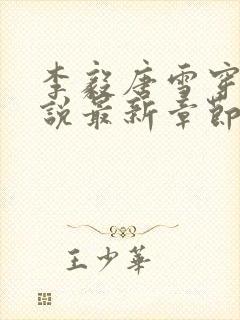 李毅唐雪穿
说最新章節
王少華